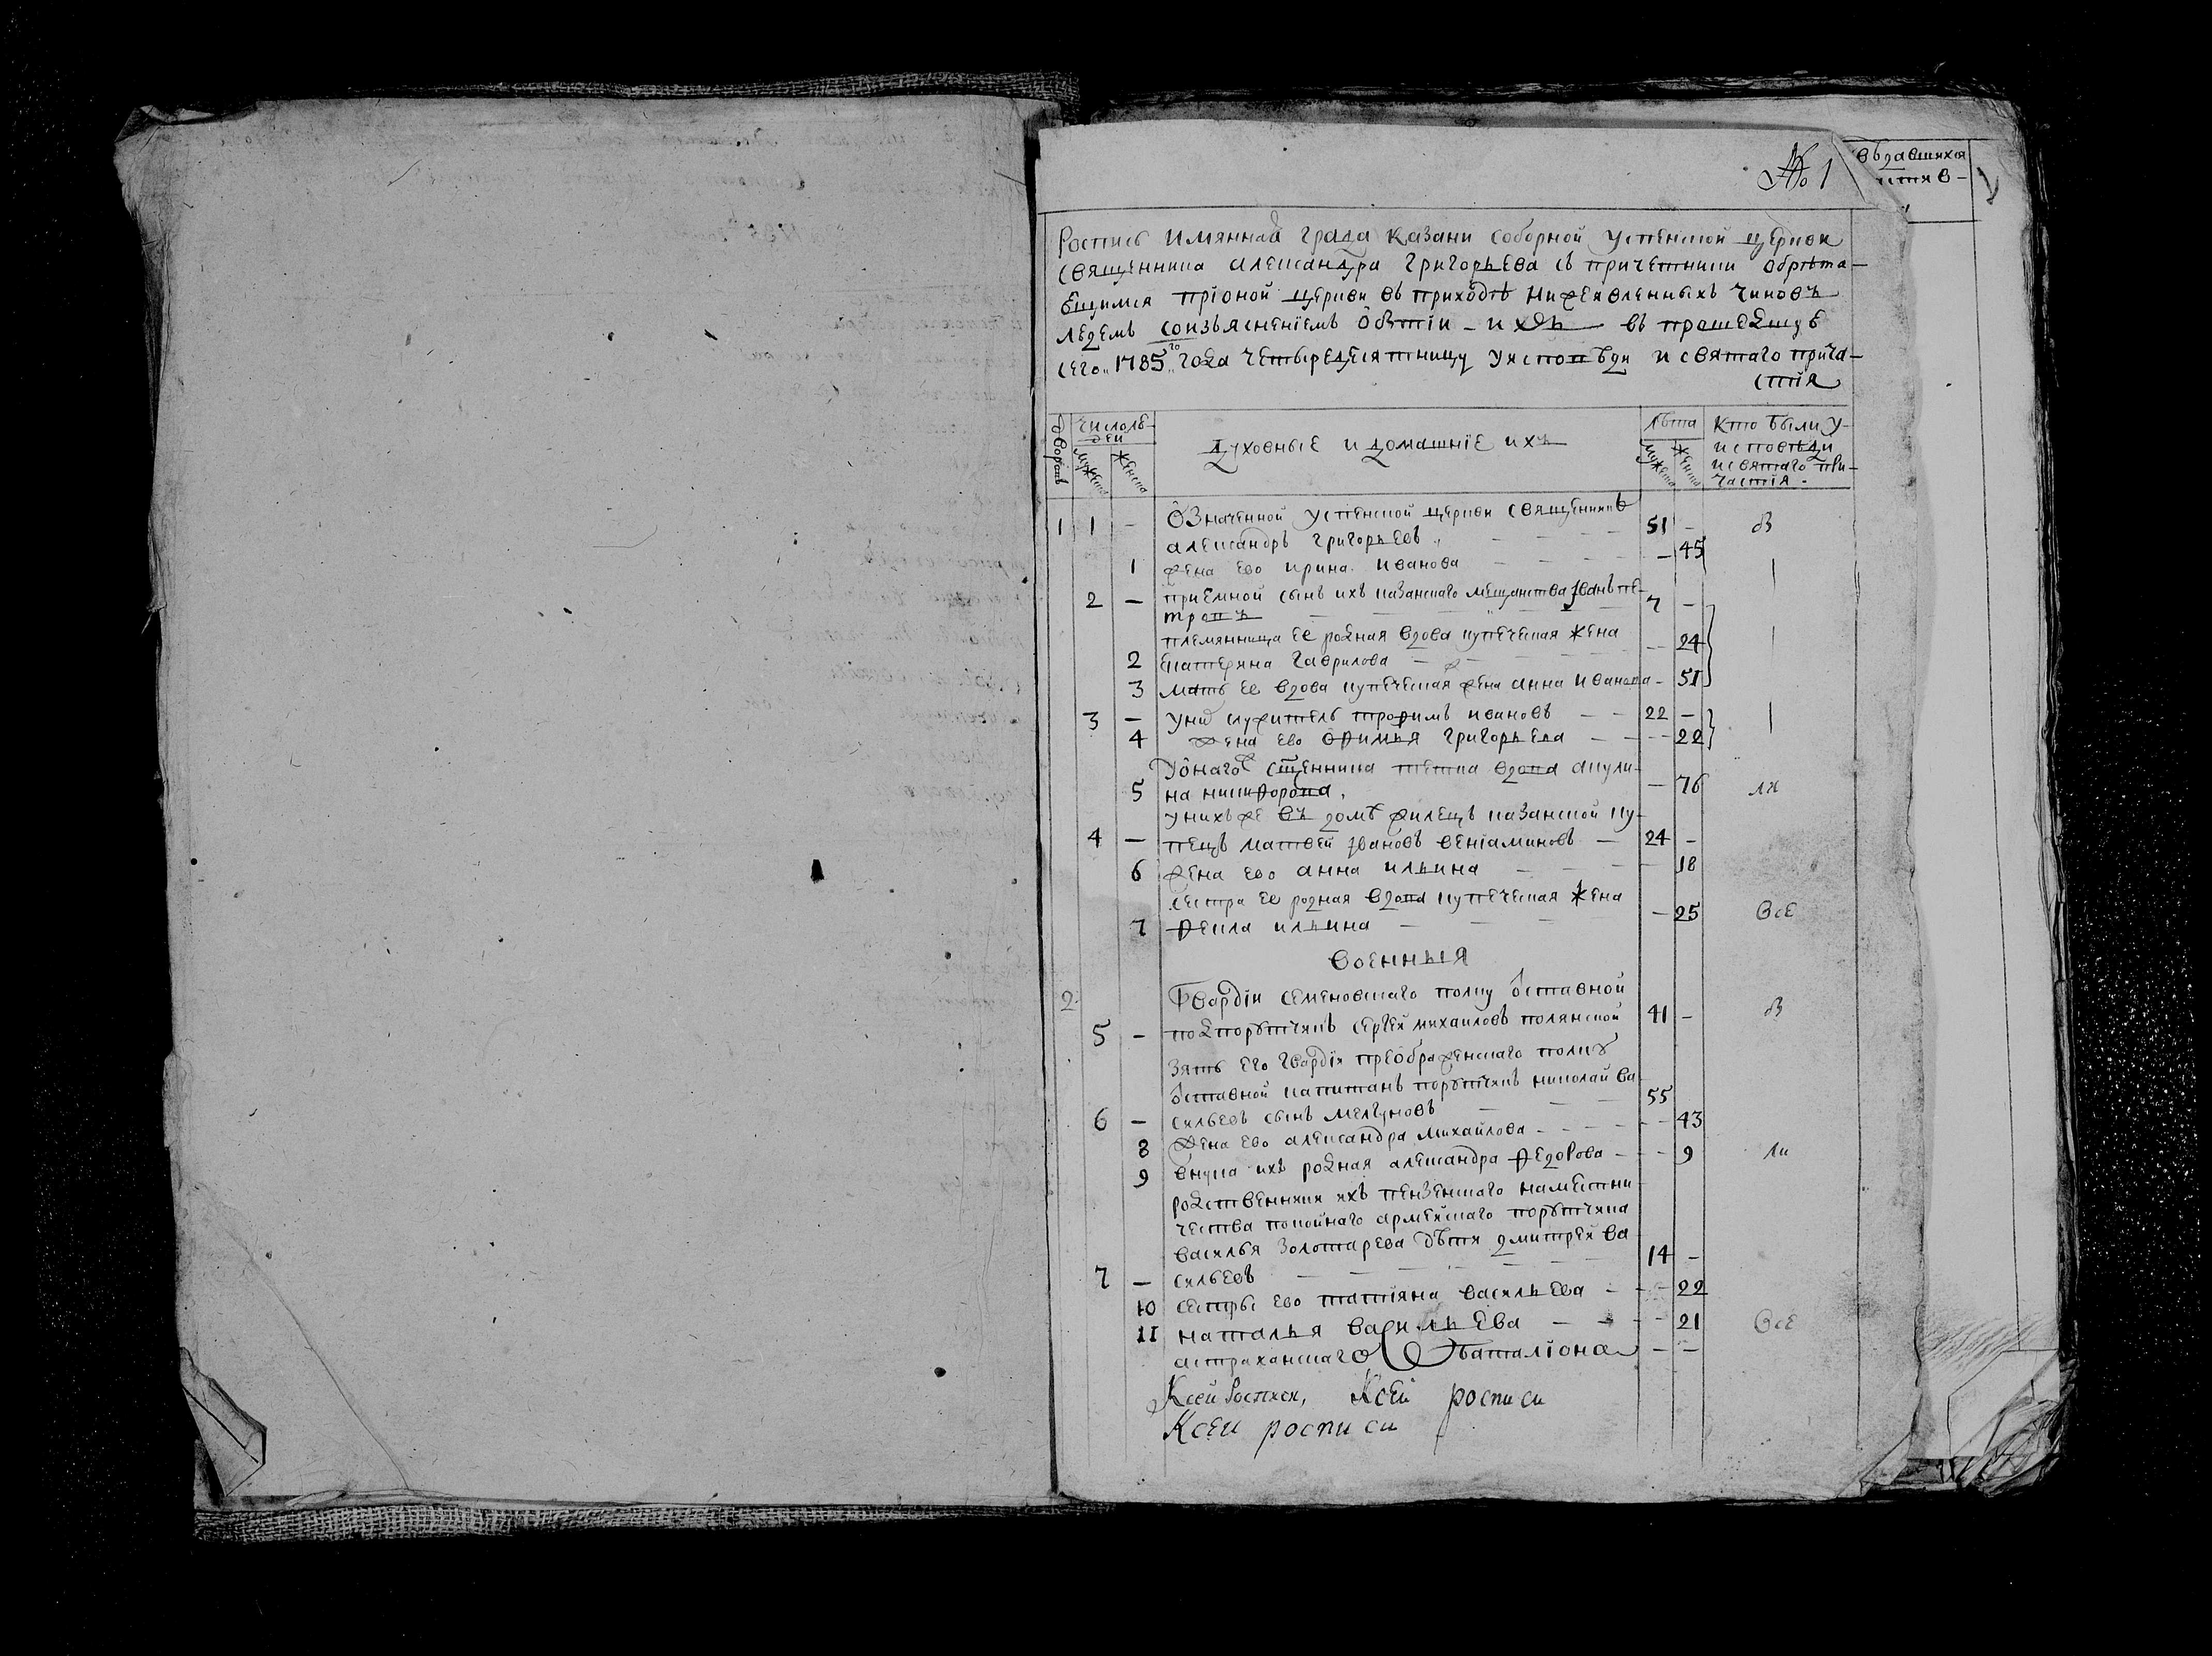 № 1
Роспись имянная града казани соборной успенской церкви
священника александра григорьева съ причетники обрѣта-
ющимся при оной церкви въ приходѣ нижеявленныхъ чиновъ
людемъ соизъясненіемъ о бытіи ихъ въ прошедшую
сего 1785 го года четыредесятницу у исповѣди и святаго прича-
стія
дворовъ
число лю-
деи
мужеска
женска
духовные и домашніе ихъ
лѣта
мужеска
женска
кто были у
исповѣди
и святаго при-
частія
1 1 - означенной успенской церкви священникъ
александръ григорьевъ - 51 -
1 жена ево ирина иванова - 45
2 - приемной сынъ ихъ казанскаго мещанства иванъ пе-
тровъ - 7 -
племянница ее родная вдова купеческая жена
2 екатерина гаврилова - 24
3 мать ее вдова купеческая жена анна иванова - 51
3 - у них служитель трофимъ ивановъ - 22 -
4 жена ево ефимья григорьева - 22
у онаго ж сщенника тетка вдова акули-
5 на никифорова - 76
у нихъ же въ домѣ жилецъ казанской ку-
4 - пецъ матвей ивановъ веніаминовъ - 24 -
6 жена ево анна ильина - 18
сестра ее родная вдова купеческая жена
7 фекла ильина - 25 все
военныя
2 гвардіи семеновскаго полку отставной
5 - подпорутчикъ сергей михаиловъ полянской 41 -
зять его гвардіи преображенскаго полку
отставной капитанъ порутчикъ николай ва-
6 - сильевъ сынъ мелгуновъ - 55
8 жена ево александра михайлова - 43
9 внука ихъ родная александра федорова - 9
родственники ихъ пензенскаго наместни-
чества покойнаго армейскаго порутчика
василья золотарева дѣти дмитрей ва-
7 - сильевъ - 14 -
10 сестры ево татіяна васильева - 22
11 наталья васильева - 21 все
астраханскаго баталіона - -
Ксей росписи, Ксей росписи
Ксеи росписи